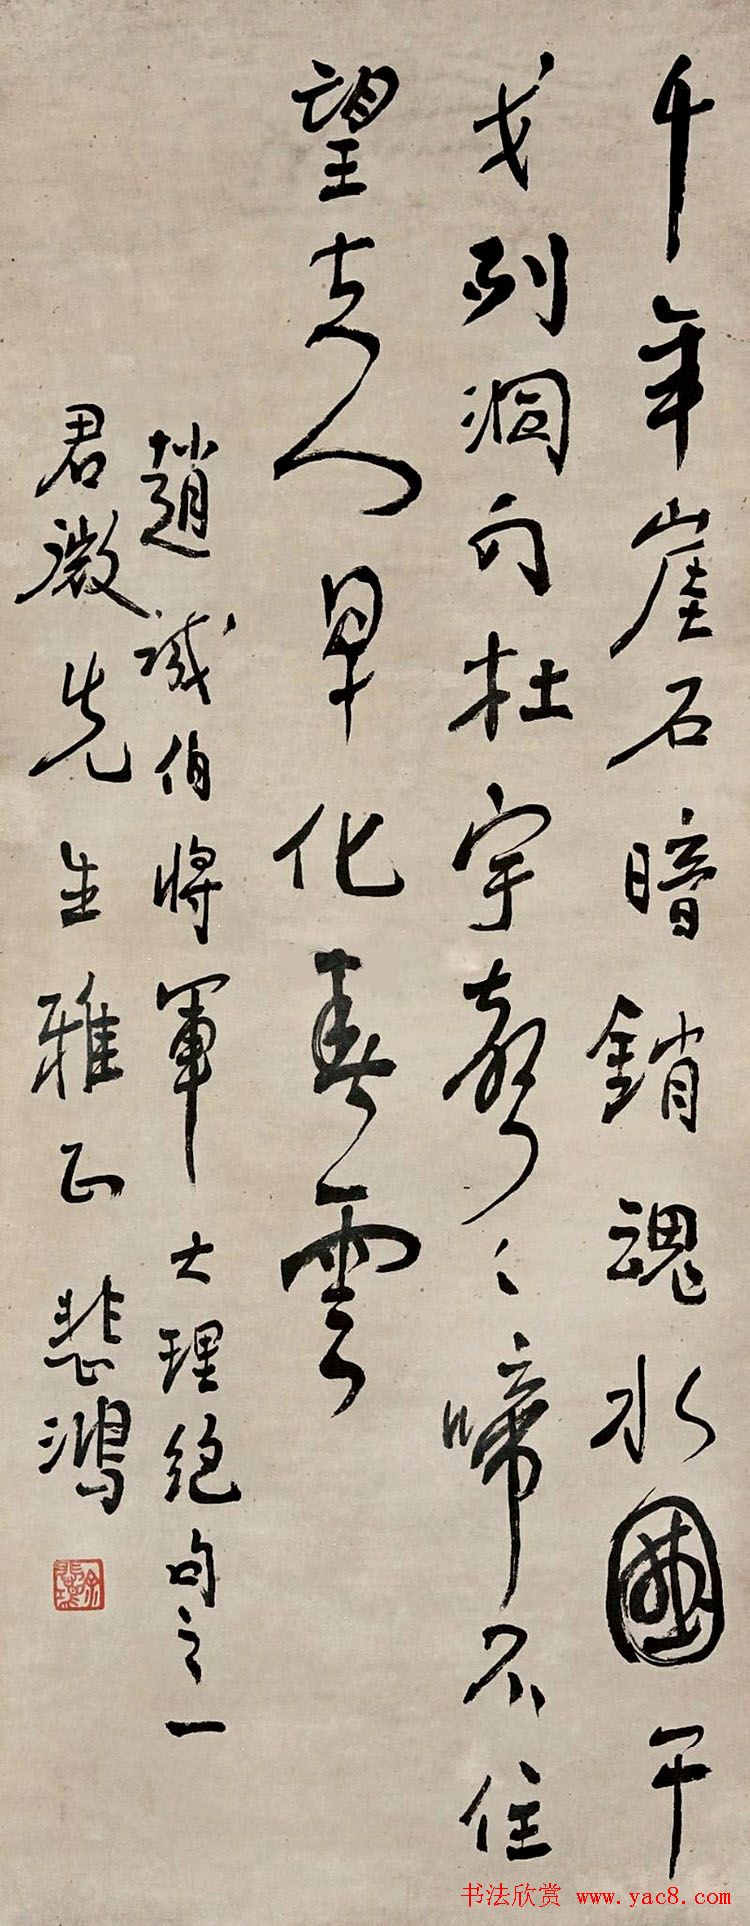 千年崖石暗銷魂水國干
戈列洞門杜宇聲々啼不住
望夫人早化春雲
趙誠伯將軍大理絕句之一
君微先生雅正 悲鴻
書法欣赏 www.yac8.com